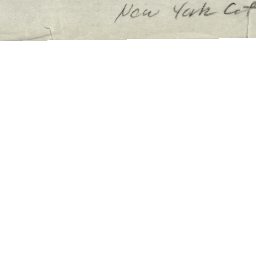 New York Cit